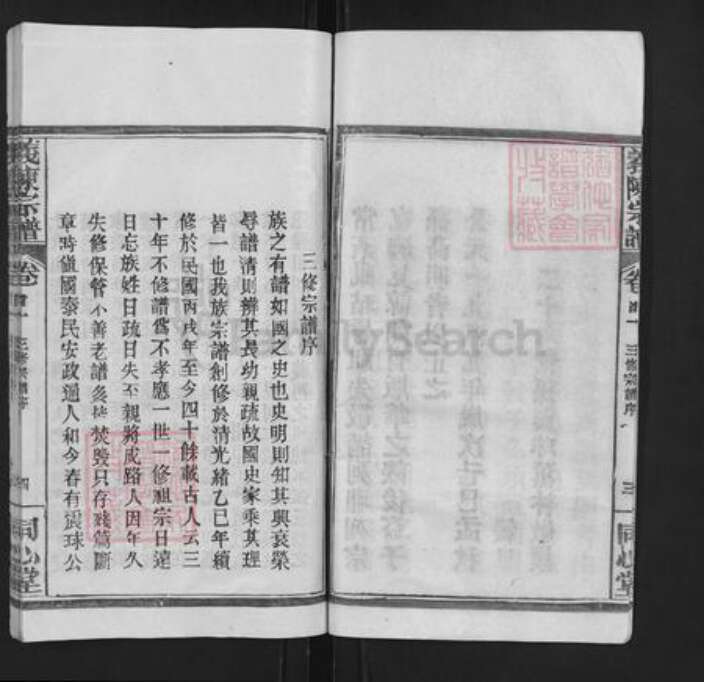 義陳宗譜
卷首一
三修宗譜序
三
同心堂
三修宗譜序
族之有譜如國之史也史明則知其興衰榮
辱譜清則辨其長幼親疏故國史家乘其理
皆一也我族宗譜創修於清光緒乙巳年續
修於民國丙戌年至今四十餘載古人云三
十年不修譜爲不孝應一世一修祖宗日遠
日忘族姓日疏日失至親將成路人因年久
失修保管不善老譜多被焚毀只存殘篇斷
章時値國泰民安政通人和今春有震球公
義陳宗譜
卷首一
三修宗譜序
四
同心堂
FamilySearch